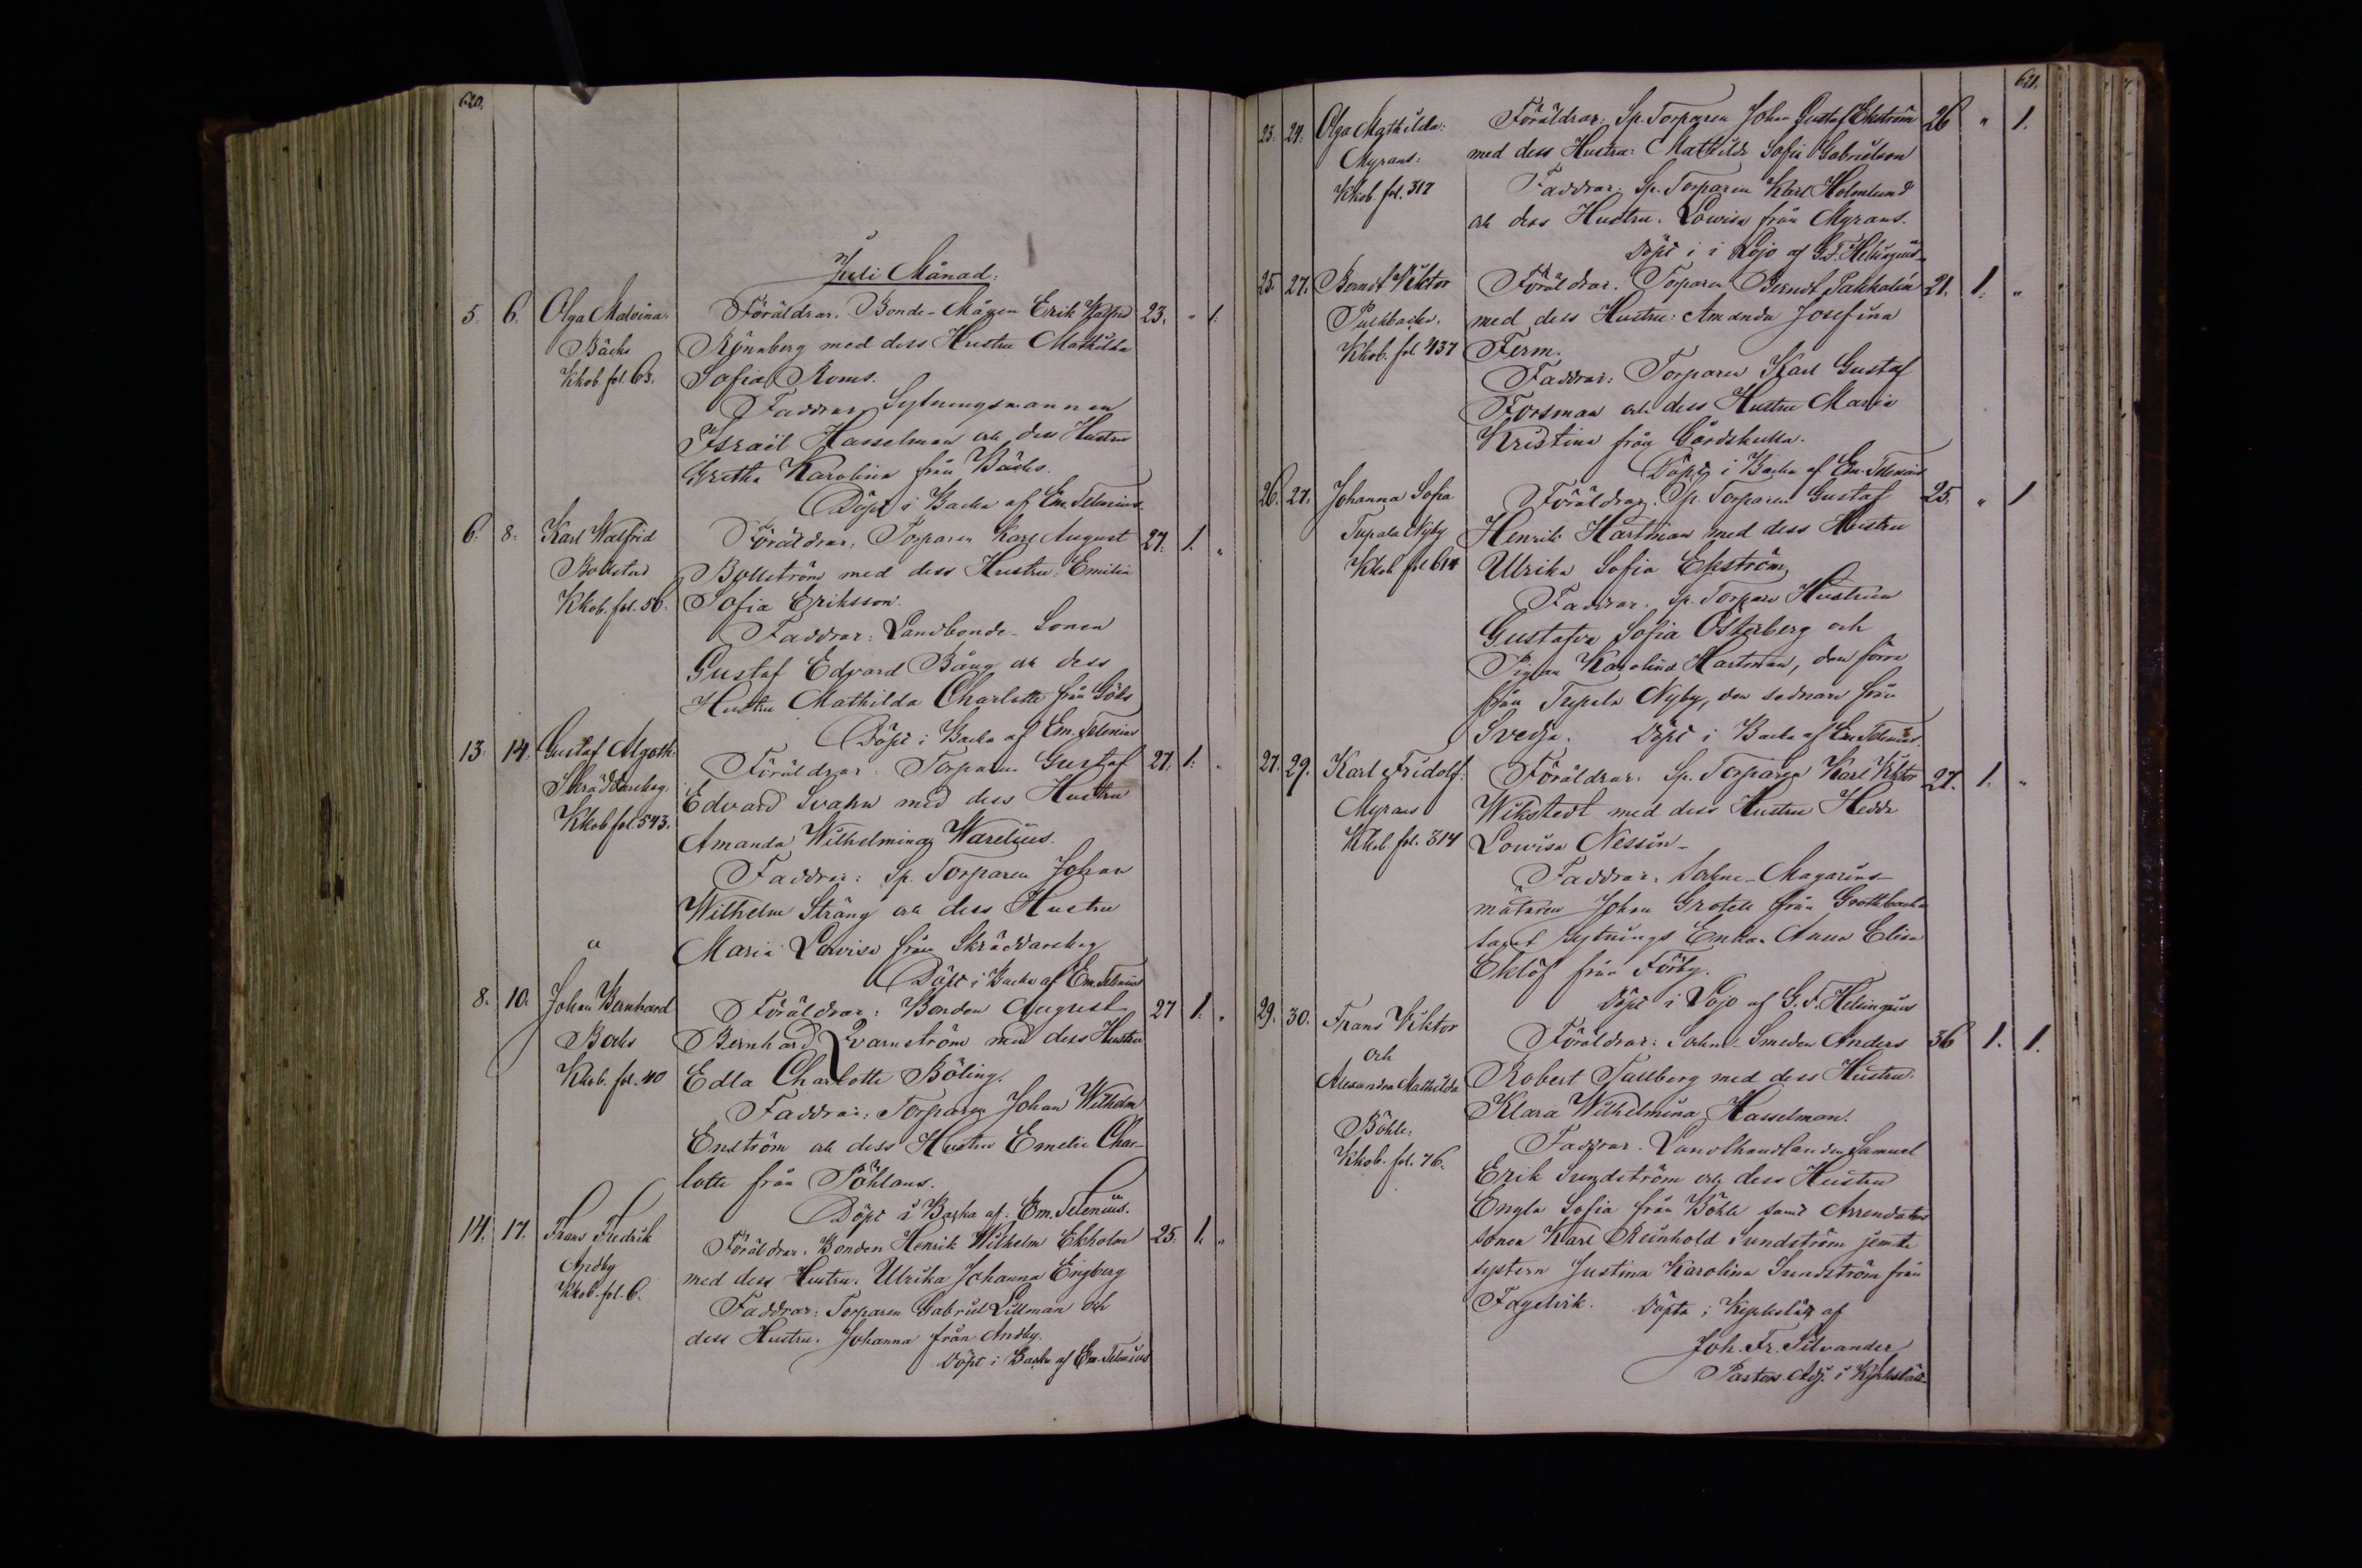 620.
Juli Månad:
5. 6. Olga Malvina: Föräldrar. Bonde-Mågen Erik Walfrid 23. " 1.
Bäcks Rönnberg med dess Hustru Mathilda
Kkob. fol. 63. Sofia Roms.
Faddrar. Sytningsmannen
Israel Hasselman och dess Hustru
Gretha Karolina från Bäcks.
Döpt i Backa af Em. Telenius.
6. 8. Karl Walfrid Föräldrar, Torparen Karl August 27. 1. "
Bollstad Bollström med dess Hustru: Emilia
Kkob. fol. 56. Sofia Eriksson.
Faddrar: Landbonde-Sonen
Gustaf Edvard Bäng och dess
Hustru Mathilda Charlotta från
Döpt i Backa af Em. Telenius
13. 14. Gustaf Algoth: Föräldrar. Torparen Gustaf 27. 1. "
Skräddarebrg. Edvard Svahn med dess Hustru
Kkob. fol. 543. Amanda Wilhelmina Warelius.
Faddrar: Sp. Torparen Johan
Wilhelm Sträng och dess Hustru
Maria Lovisa från Skräddarebrg
Döpt i Backa af Em. Telenius
8. 10. Johan Bernhard Föräldrar: Bonden August 27 1. "
Backs Bernhard Qvarnström med dess Hustru
Kkob. fol. 40 Edla Charlotta Böling.
Faddrar: Torparen Johan Wilhelm
Enström och dess Hustru Emelie Char-
lotte från Påhlans.
Döpt i Backa af: Em. Telenius.
14. 17. Frans Fredrik Föräldrar. Bonden Henrik Wilhelm Ekholm 25. 1. "
Andby med dess Hustru. Ulrika Johanna Engberg
Kkob. fol. 6. Faddrar: Torparen Gabriel Lillman och
dess Hustru. Johanna från Andby.
Döpt i Backa af Em. Telenius
621.
23. 24. Olga Mathilda: Föräldrar: Sp. Torparen Johan Gustaf Ekström 26 " 1.
Myrans: med dess Hustru: Mathilda Sofia Gabrielson
Kkob. fol. 317 Faddrar: Sp. Torparen Karl Holmlund
och dess Hustru. Lowisa från Myrans.
Döpt i i Lojo af G. F. Helsingius
25. 27. Berndt Viktor Föräldrar. Torparen Berndt 21. 1. "
med dess Hustru: Amanda Josefina
Kkob. fol. 437 Ferm.
Faddrar: Torparen Karl Gustaf
Forsman och dess Hustru Maria
Kristina från Gårdskulla.
Döpt i Backa af Em. Telenius
26. 27. Johanna Sofia Föräldrar. Sp. Torparen Gustaf 25. " 1
Tupala Nyby Henrik Hartman med dess Hustru
Kkob. fol. 614 Ulrika Sofia Ekström,
Faddrar. Sp. Torpare Hustrun
Gustafva Sofia Österberg och
Pigan Karolina Hartman, den förra
från Tupala Nyby, den sednare från
Svedja. Döpt i Backa af Em. Telenius.
27. 29. Karl Fridolf: Föräldrar. Sp. Torparen Karl Viktor 27. 1. "
Myrans Wikstedt med dess Hustru Hedda
Kkob. fol. 314 Lowisa Nessin-
Faddrar. Sockne-Magasins-
mätaren Johan Grotell från Grottbacka
samt Sytnings Enkan Anna Elisa
Eklöf från Förby.
Döpt i Lojo af G. F. Helsingius
29. 30. Frans Viktor Föräldrar: Sockne-Smeden Anders 36 1. 1.
och Robert Tallberg med dess Hustru:
Alexandra Mathilda Klara Wilhelmina Hasselman.
Böhle: Faddrar. Landthandlanden Samuel
Kkob. fol. 76. Erik Sundström och dess Hustru
Engla Sofia från Böhle samt Arrendators
sonen Karl Reinhold Sundström jemte
systern Justina Karolina Sundström från
Fagervik. Döpta i Kyrkslätt af
Joh. Fr. Silvander
Pastors Adj. i Kyrkslätt